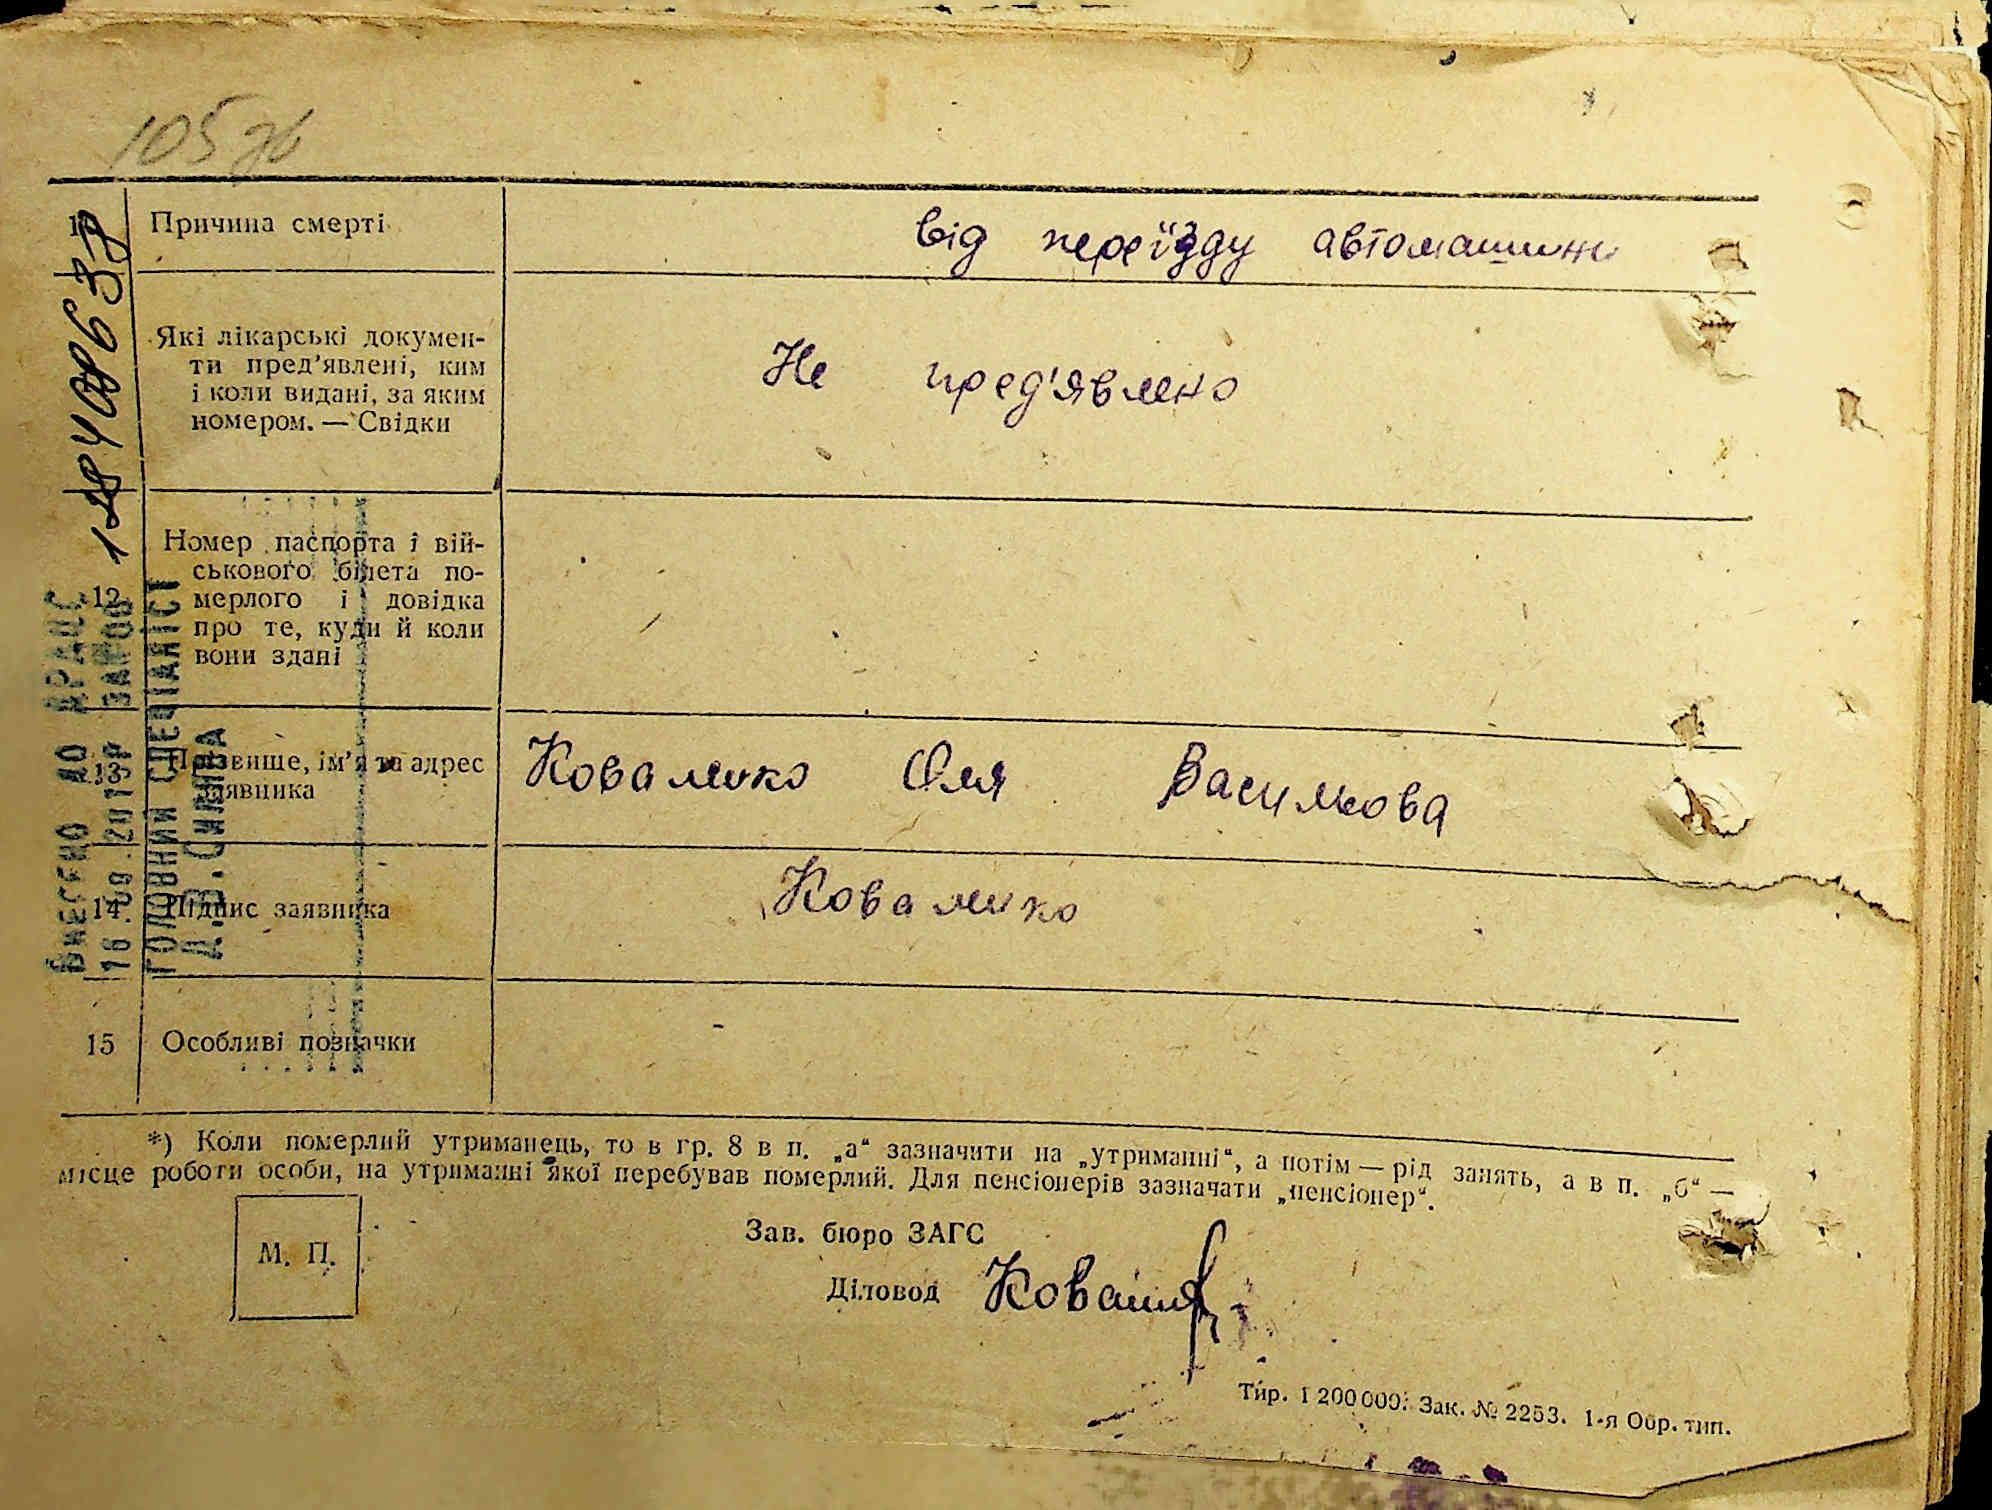 105 зв
Причина смерті
від переїзду автомашини
Які лікарські докумен-
ти пред'явлені, ким
і коли видані, за яким
номером. — Свідки
Не пред'явлено
12
Номер паспорта і вій-
ськового білета по-
мерлого і довідка
про те, куди й коли
вони здані
13
Прізвище, ім'я та адрес
заявника
Ковалико Оля Василькова
14
Підпис заявника
Ковалико
15
Особливі позначки
*) Коли померлий утриманець, то в гр. 8 в п. „а“ зазначити на „утриманні“, а потім — рід занять, а в п. „б“ —
місце роботи особи, на утриманні якої перебував померлий. Для пенсіонерів зазначати „пенсіонер“.
М. П.
Зав. бюро ЗАГС
Діловод
Тир. 1 200 000. Зак. № 2253. 1-я Обр. тип.
Внесено до ДРАЦС
ГОЛОВНИЙ СПЕЦІАЛІСТ